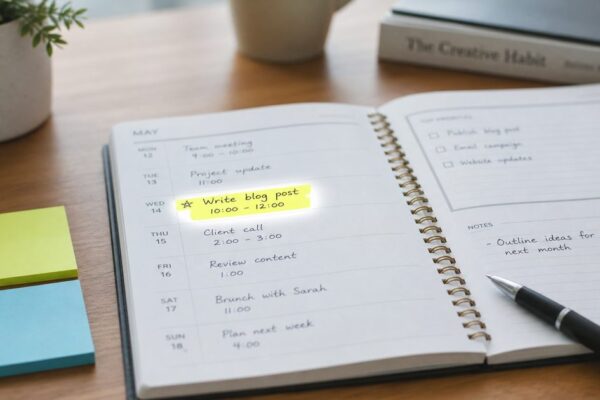 The Creative Habit
MAY
MON
12
Team meeting
9:00 - 10:00
TUE
13
Project update
11:00
WED
14
☆ Write blog post
10:00 - 12:00
THU
15
Client call
2:00 - 3:00
FRI
16
Review content
1:00
SAT
17
Brunch with Sarah
11:00
SUN
18
Plan next week
4:00
TOP PRIORITIES
Publish blog post
Email campaign
Website updates
NOTES
- Outline ideas for
next month